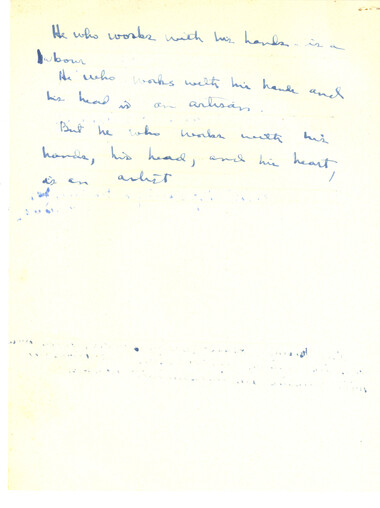 He who works with his hands - is a
labour
He who works with his hands and
his head is an artisan.
But he who works with his
hands, his head, and his heart,
is an artist